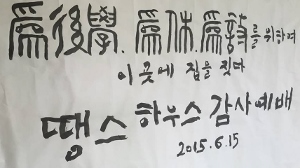 為後學, 為休, 為詩를 위하여
이 곳에 집을 짓다
땡스 하우스 감사예배
2015.6.15